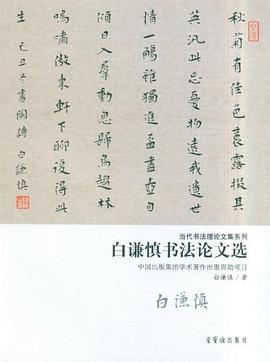 秋菊有佳色裛露掇其
英汎此忘憂物遠我遺世
情一觴雖獨進盃盡壺自
傾日入羣動息歸鳥趨林
鳴嘯傲東軒下聊復得此
生 己丑冬書陶詩 白謙慎
当代书法理论文集系列
白谦慎书法论文选
中国出版集团学术著作出版资助项目
白谦慎／著
白谦慎
榮寶齋出版社